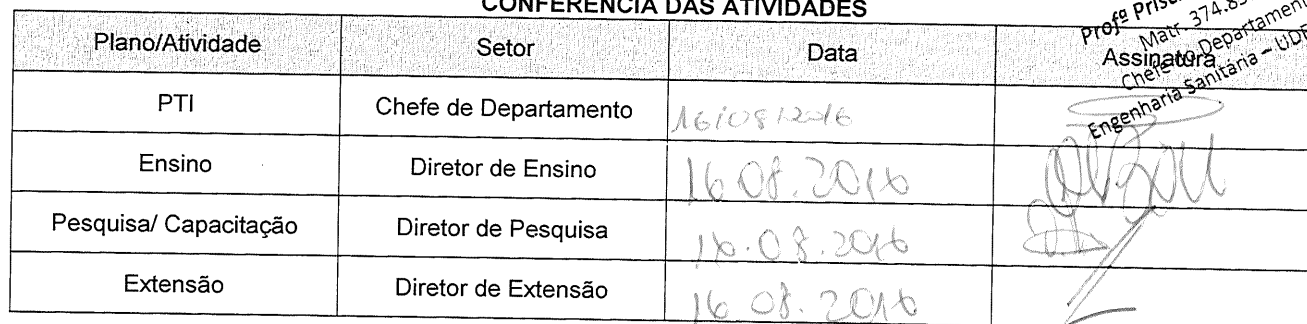 CONFERÊNCIA DAS ATIVIDADES
Plano/Atividade Setor Data Assinatura
PTI Chefe de Departamento 16/08/2016
Ensino Diretor de Ensino 16.08.2016
Pesquisa/ Capacitação Diretor de Pesquisa 16.08.2016
Extensão Diretor de Extensão 16.08.2016
Profª
Matr. 374.8
Chefe do Departament
Engenharia Sanitária – UDE